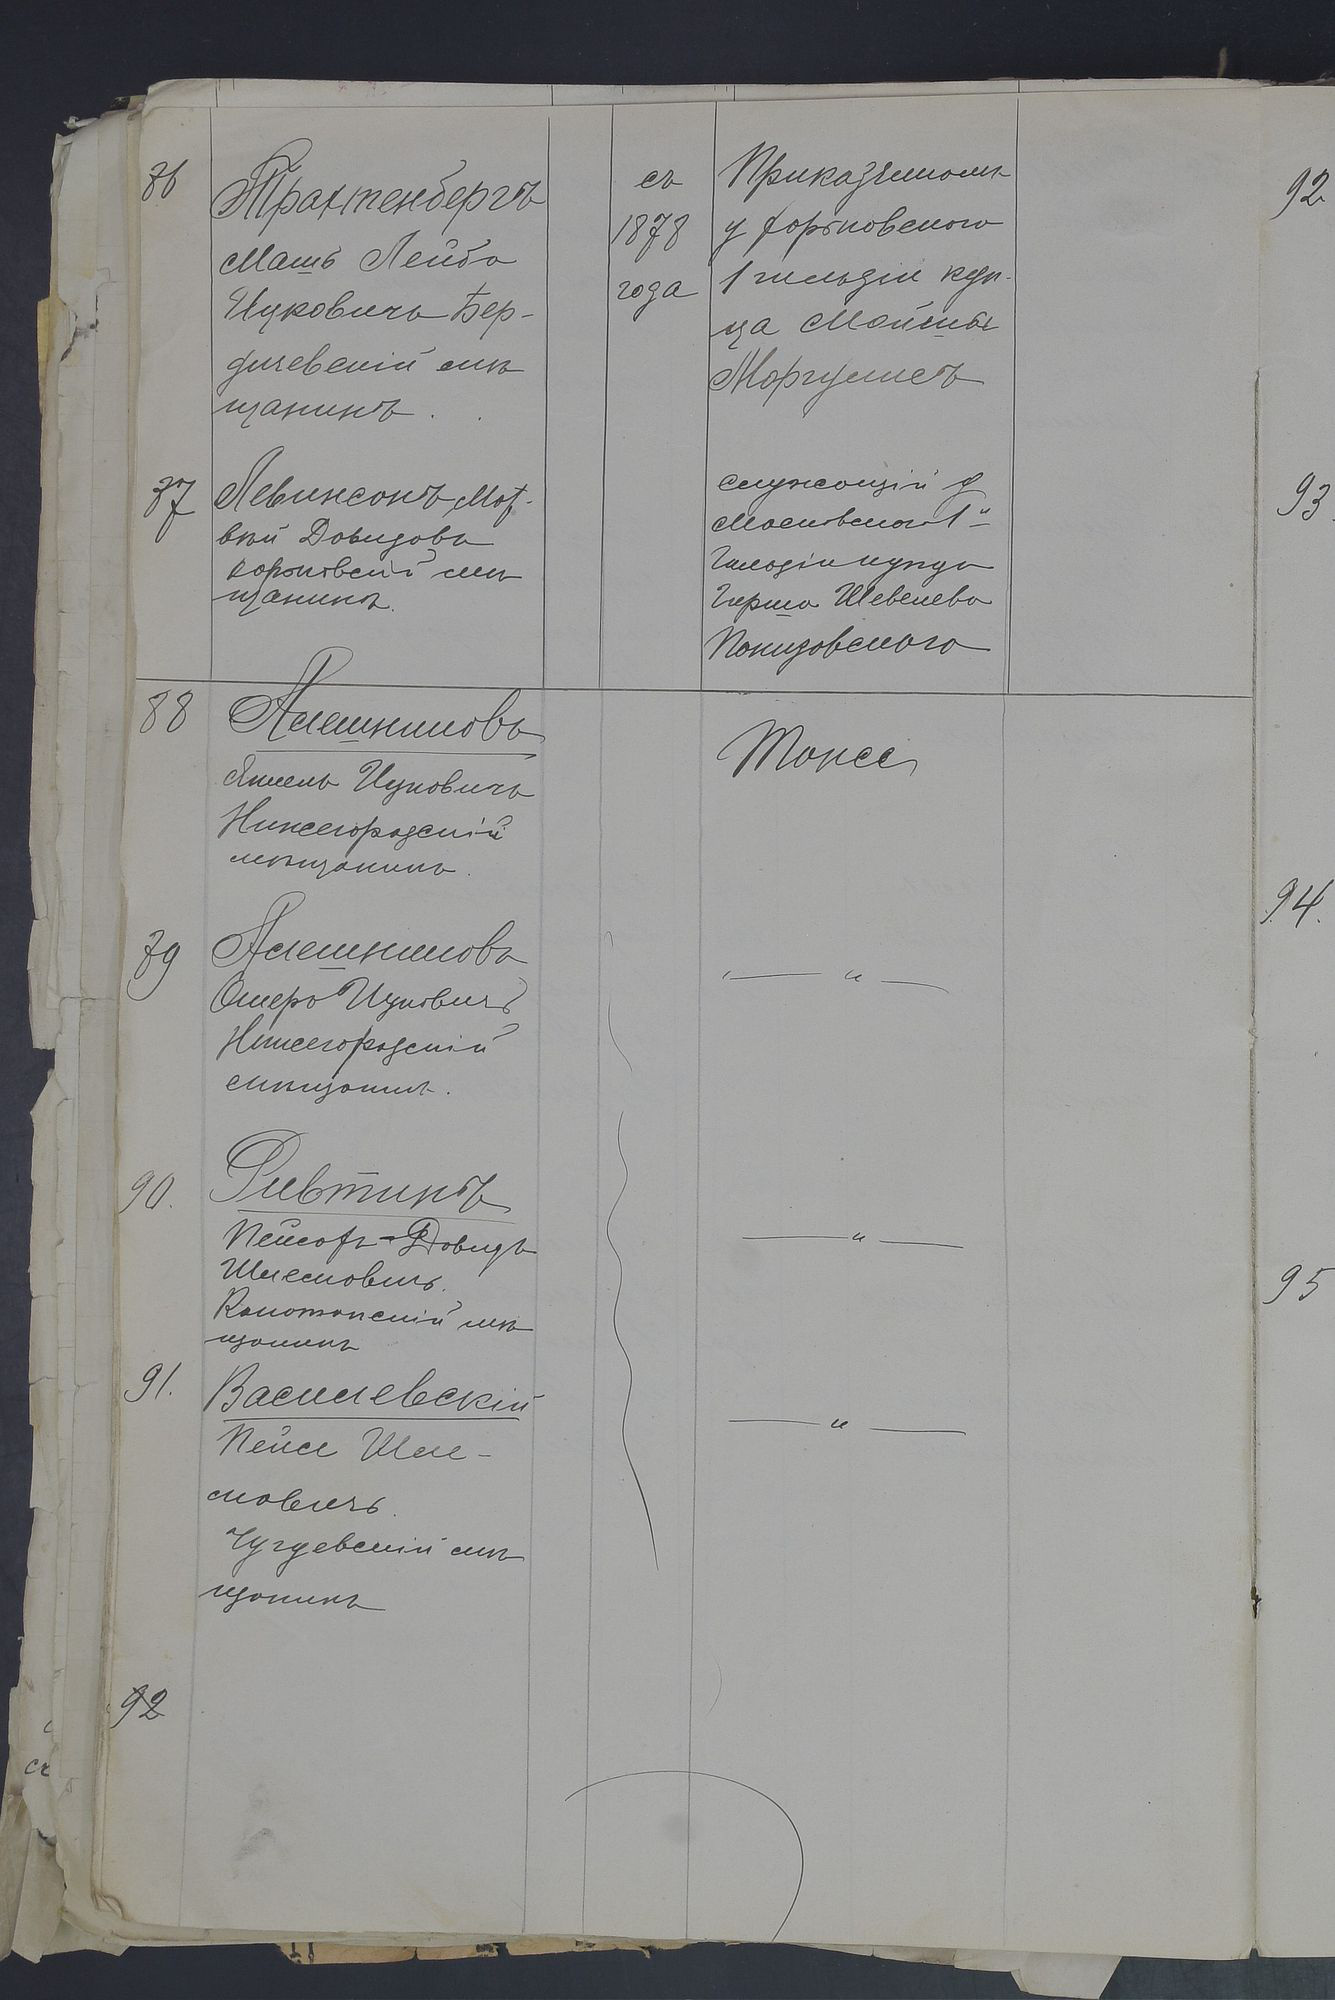 86
Трахтенбергъ
Машъ Лейба
Ицковичъ Бер-
дичевскій мѣ
щанинъ.
съ
1878
года
Приказчикомъ
у Харьковскаго
1 гильдіи куп-
ца Мойши
Моргулисъ
87
Левинсонъ Мат-
вѣй Давидовъ
Харьковскій мѣ
щанинъ.
служащій у
Московскаго 1й
Гильдіи купца
Герша Шевелева
Понизовскаго
88
Алешниковъ
Янкель Ицковичъ
Нижегородскій
мѣщанинъ.
Тоже
89
Алешниковъ
Ошеръ Ицковичъ
Нижегородскій
мѣщанинъ.
— " —
90.
Ривтинъ
Пейсахъ-Давидъ
Шлемовичъ.
Конотопскій мѣ
щанинъ
— " —
91.
Василевскій
Пейсе Шле-
мовичъ.
Чугуевскій мѣ
щанинъ
— " —
92
92
93.
94.
95